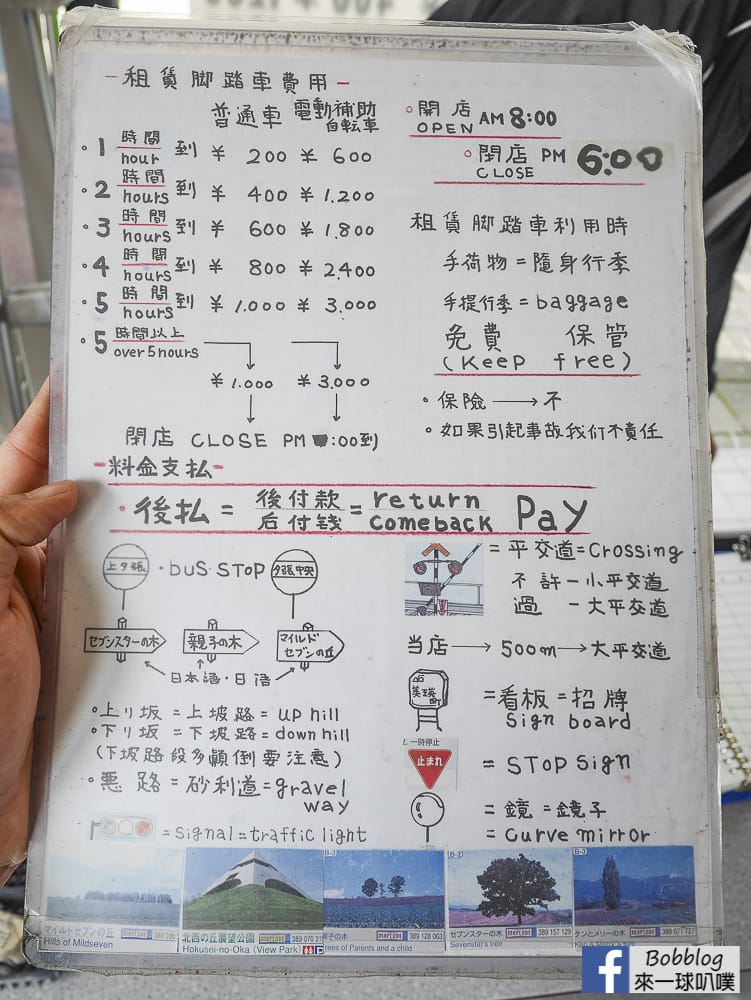 - 租賃脚踏車費用 -
普通車 電動補助自転車
・1 時間 hour 到 ¥ 200 ¥ 600
・2 時間 hours 到 ¥ 400 ¥ 1.200
・3 時間 hours 到 ¥ 600 ¥ 1.800
・4 時間 hours 到 ¥ 800 ¥ 2.400
・5 時間 hours 到 ¥ 1.000 ¥ 3.000
・5 時間以上 over 5 hours
¥ 1.000 ¥ 3.000
閉店 CLOSE PM :00到
。開店 OPEN AM 8:00
。閉店 CLOSE PM 6:00
租賃脚踏車利用時
手荷物=隨身行李
手提行李=baggage
免費 保管
(Keep free)
・保險 → 不
・如果引起事故我们不責任
- 料金支払 -
・後払 = 後付款 后付錢 = return comeback Pay
上夕張 ・bus STOP 夕張中央
セブンスターの木 親子の木 マイルドセブンの丘
日本語・日语
・上り坂=上坡路=up hill
・下り坂=下坡路=down hill
(下坡路段多顛倒要注意)
・悪路=砂利道=gravel way
=signal=traffic light
=平交道=Crossing
不許 - 小平交道
過 - 大平交道
当店 → 500m → 大平交道
美瑛
=看板=招牌
Sign board
一時停止
止まれ
= STOP sign
=鏡=鏡子
=curve mirror
マイルドセブンの丘 MAPCODE 389 036
Hills of Mildseven
北西の丘展望公園 MAPCODE 389 070 31
Hokusei-no-Oka (View Park)
B-1
親子の木 MAPCODE 389 128 063
Trees of Parents and a child
B-2
セブンスターの木 MAPCODE 389 157 129
Sevenstar's tree
B-3
ケンとメリーの木 MAPCODE 389 071 727
Bobblog
來一球叭噗